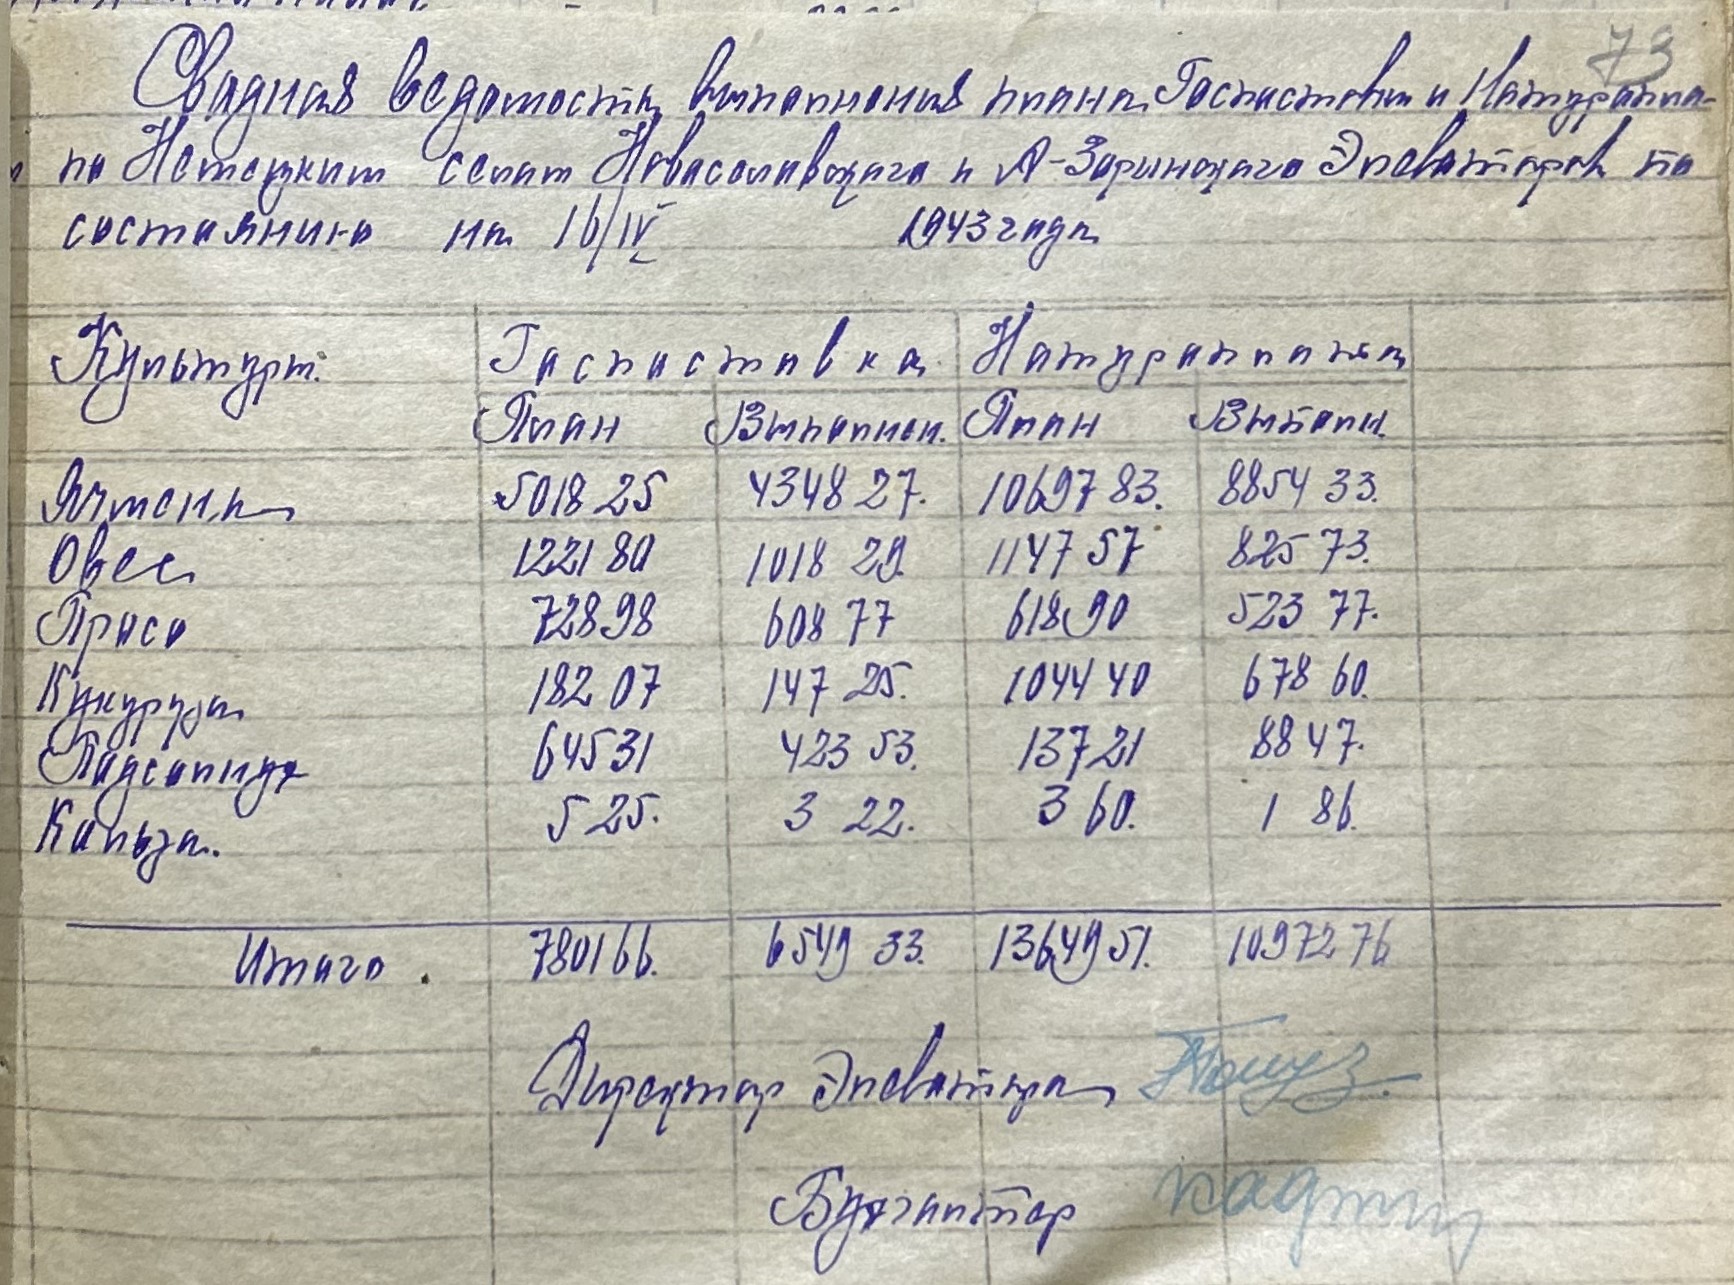 73
Сводная ведомость выполнения плана Госпоставки и Натуропла-
по Немецким селам Новоселовского и А-Зоринского Элеваторов по
состоянию на 16/IV 1943 года
Культуры. Госпоставка Натуроплата
План Выполнен. План Выполн.
Ячмень 5018 25 4348 27. 10697 83. 8854 33.
Овес 1221 80 1018 29. 1147 57 825 73.
Просо 728 98 608 77 618 90 523 77.
Кукуруза 182 07 147 25. 1044 40 678 60.
Подсолнух 645 31 423 53. 137 21 88 47.
Кольза. 5 25. 3 22. 3 60. 1 86.
Итого. 7801 66. 6549 33. 13649 51. 10972 76
Директор Элеватора
Бухгалтер